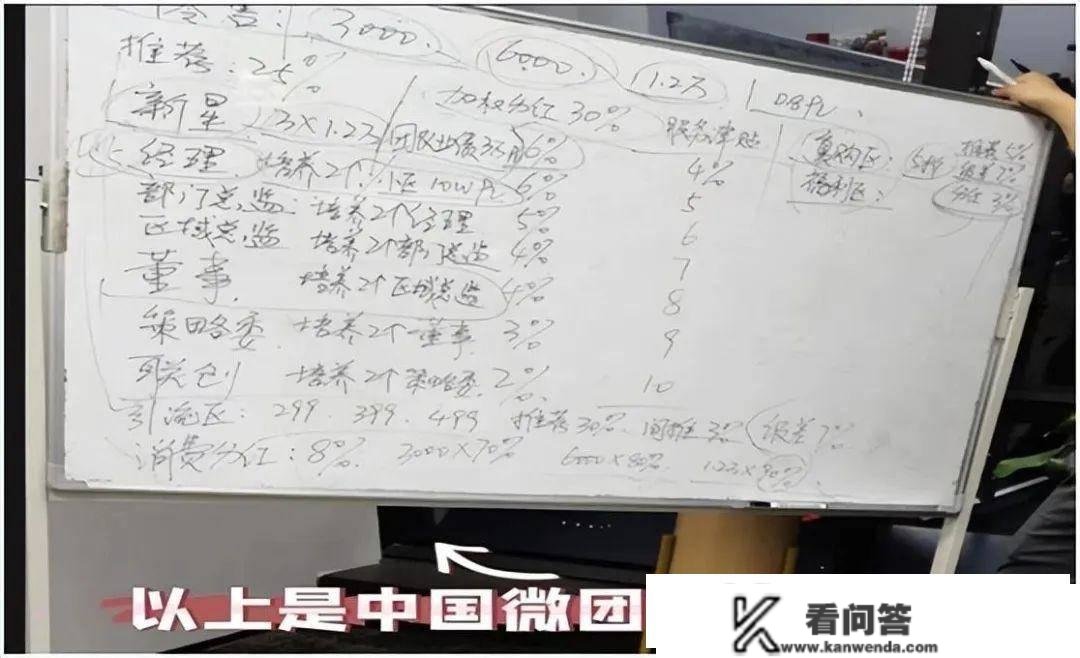 零售: 3000. 6000. 1.2万
推荐: 25% D8PL、
新星 3×1.2万 团队业绩 6% 加权分红 30% 服务津贴
经理 培养2个 小区10W PL 6% 4%
部门总监: 培养2个经理 5% 5
区域总监 培养2个部门总监 4% 6
7
董事 培养2个区域总监 4% 8
策略委 培养2个董事 3% 9
联创 培养2个策略委 2% 10
引流区: 299. 399. 499 推荐30%. 间推3% 级差7%
消费分红: 8% 3000×70% 6000×80% 1.2万×90%
复购区: 推荐5%
级差7%
福利区: 分红 3%
以上是中国微团
看问答
www.kanwenda.com